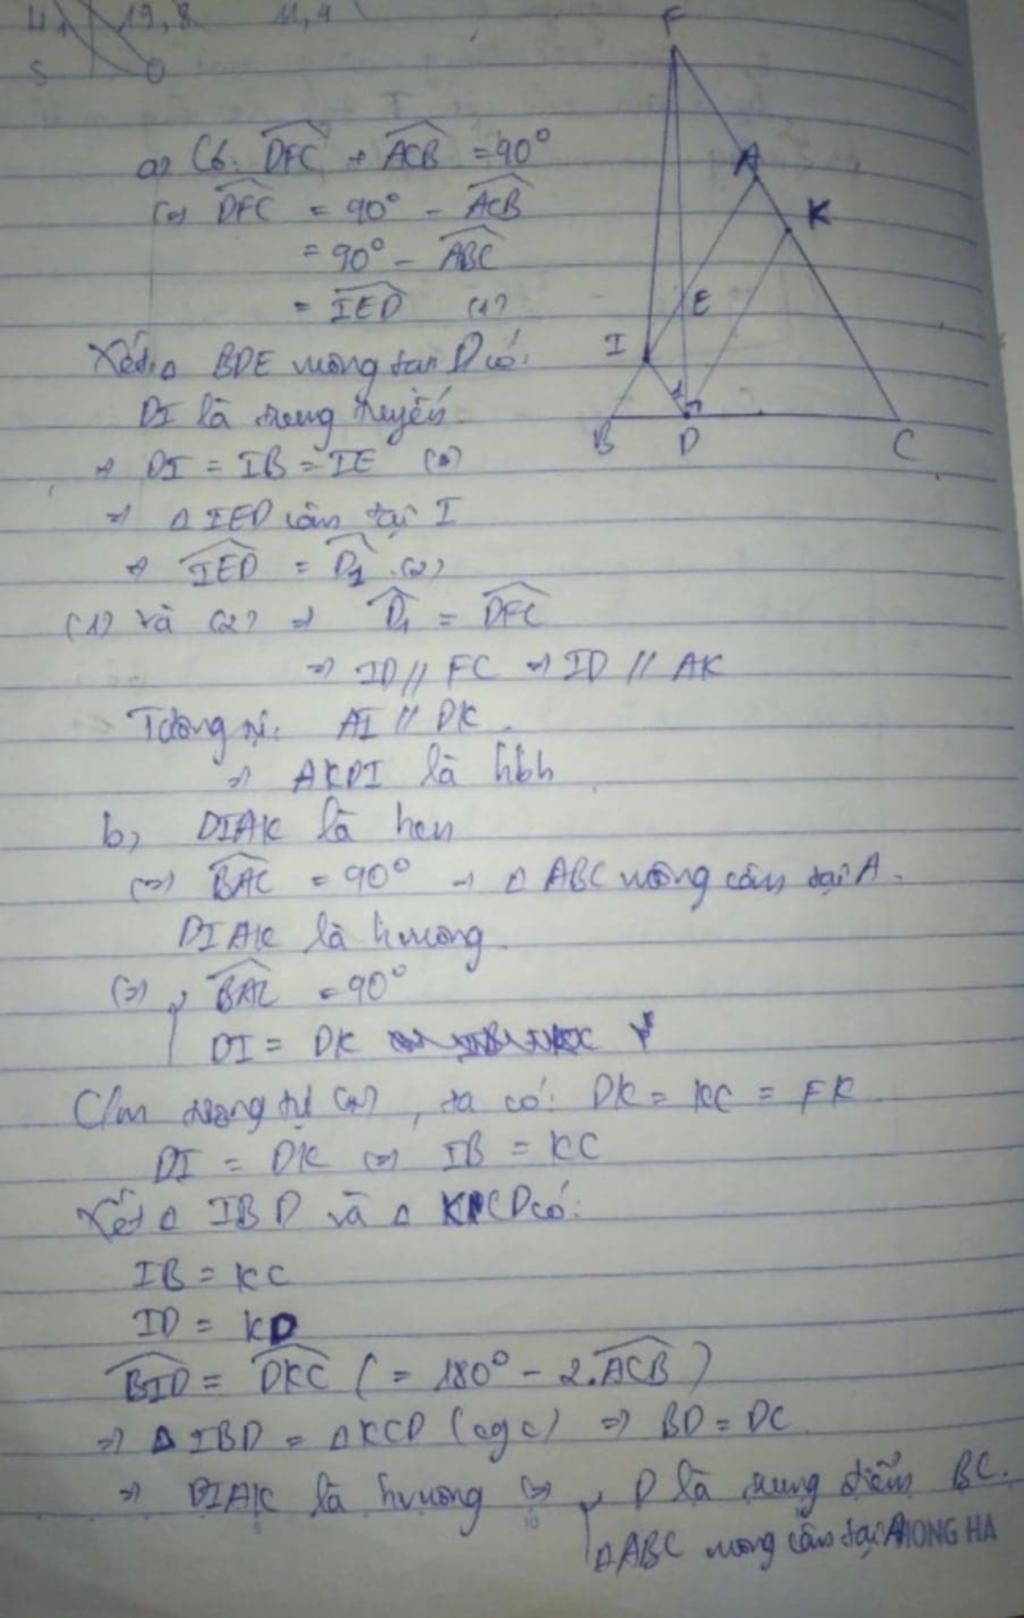 19,8 11,4
S O
F
A
K
E
I
1
B D C
a, Có: DFC + ACB = 90°
(=) DFC = 90° - ACB
= 90° - ABC
= IED (1)
Xét Δ BDE vuông tại D có:
DI là trung tuyến
=) DI = IB = IE (*)
=) Δ IED cân tại I
=) IED = D1 (2)
(1) và (2) =) D1 = DFC
=) ID // FC =) ID // AK
Tương tự: AI // DK
=) AKDI là hbh
b, DIAK là hcn
(=) BAC = 90° =) Δ ABC vuông cân tại A.
DIAK là hvuông
(=) { BAC = 90°
DI = DK
C/m tương tự (*), ta có: DK = KC = FK
DI = DK (=) IB = KC
Xét Δ IBD và Δ KCD có:
IB = KC
ID = KD
BID = DKC ( = 180° - 2.ACB )
=) Δ IBD = Δ KCD (cgc) =) BD = DC
=) DIAK là hvuông (=) { D là trung điểm BC.
Δ ABC vuông cân tại A
HONG HA